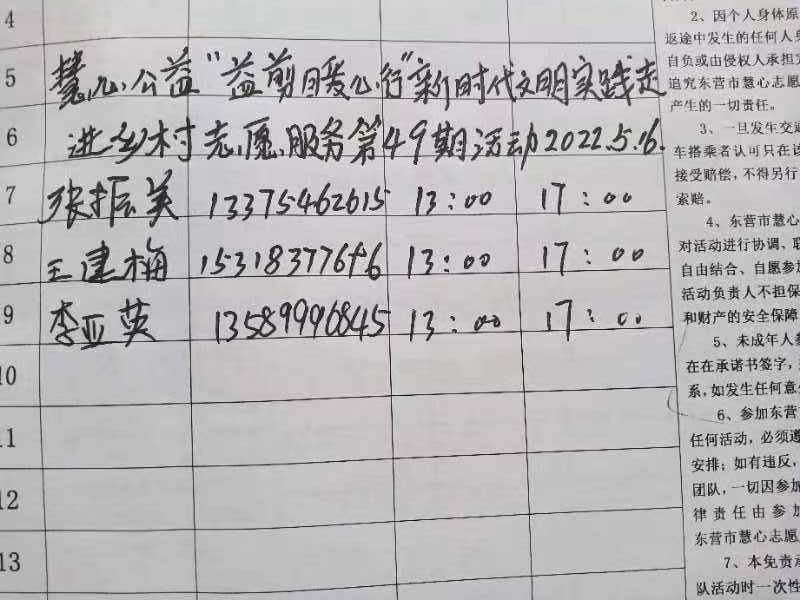 4
5 慧心公益“益剪暖心行”新时代文明实践走
6 进乡村志愿服务第49期活动2022.5.16.
7 张振美 13375462615 13:00 17:00
8 王建梅 13:00 17:00
9 李亚英 13589996845 13:00 17:00
10
11
12
13
2、因个人身体原
返途中发生的任何人身
自负或由侵权人承担
追究东营市慧心志愿
产生的一切责任。
3、一旦发生交通
车搭乘者认可只在该
接受赔偿,不得另行
索赔。
4、东营市慧心
对活动进行协调、联
自由结合、自愿参加
活动负责人不担保
和财产的安全保障
5、未成年人参
在在承诺书签字,
系,如发生任何意
6、参加东营
任何活动,必须遵
安排;如有违反,
团队,一切因参加
律责任由参加
东营市慧心志愿
7、本免责承
队活动时一次性